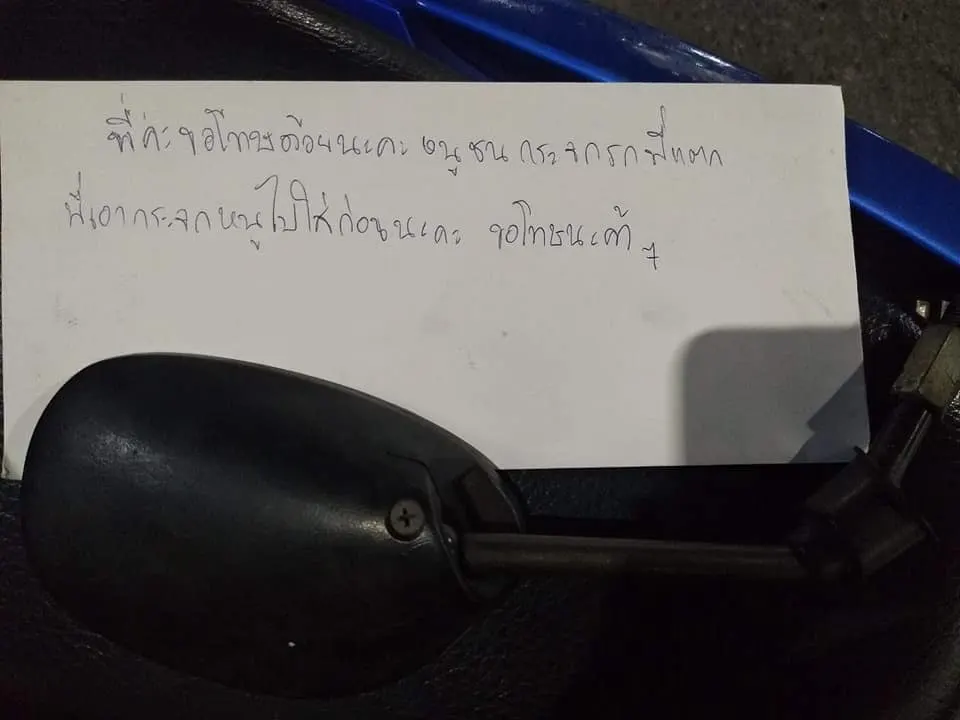 พี่ค่ะ ขอโทษด้วยนะคะ หนูชนกระจกรถพี่แตก
พี่เอากระจกหนูไปใส่ก่อนนะคะ ขอโทษนะค้า ๆ